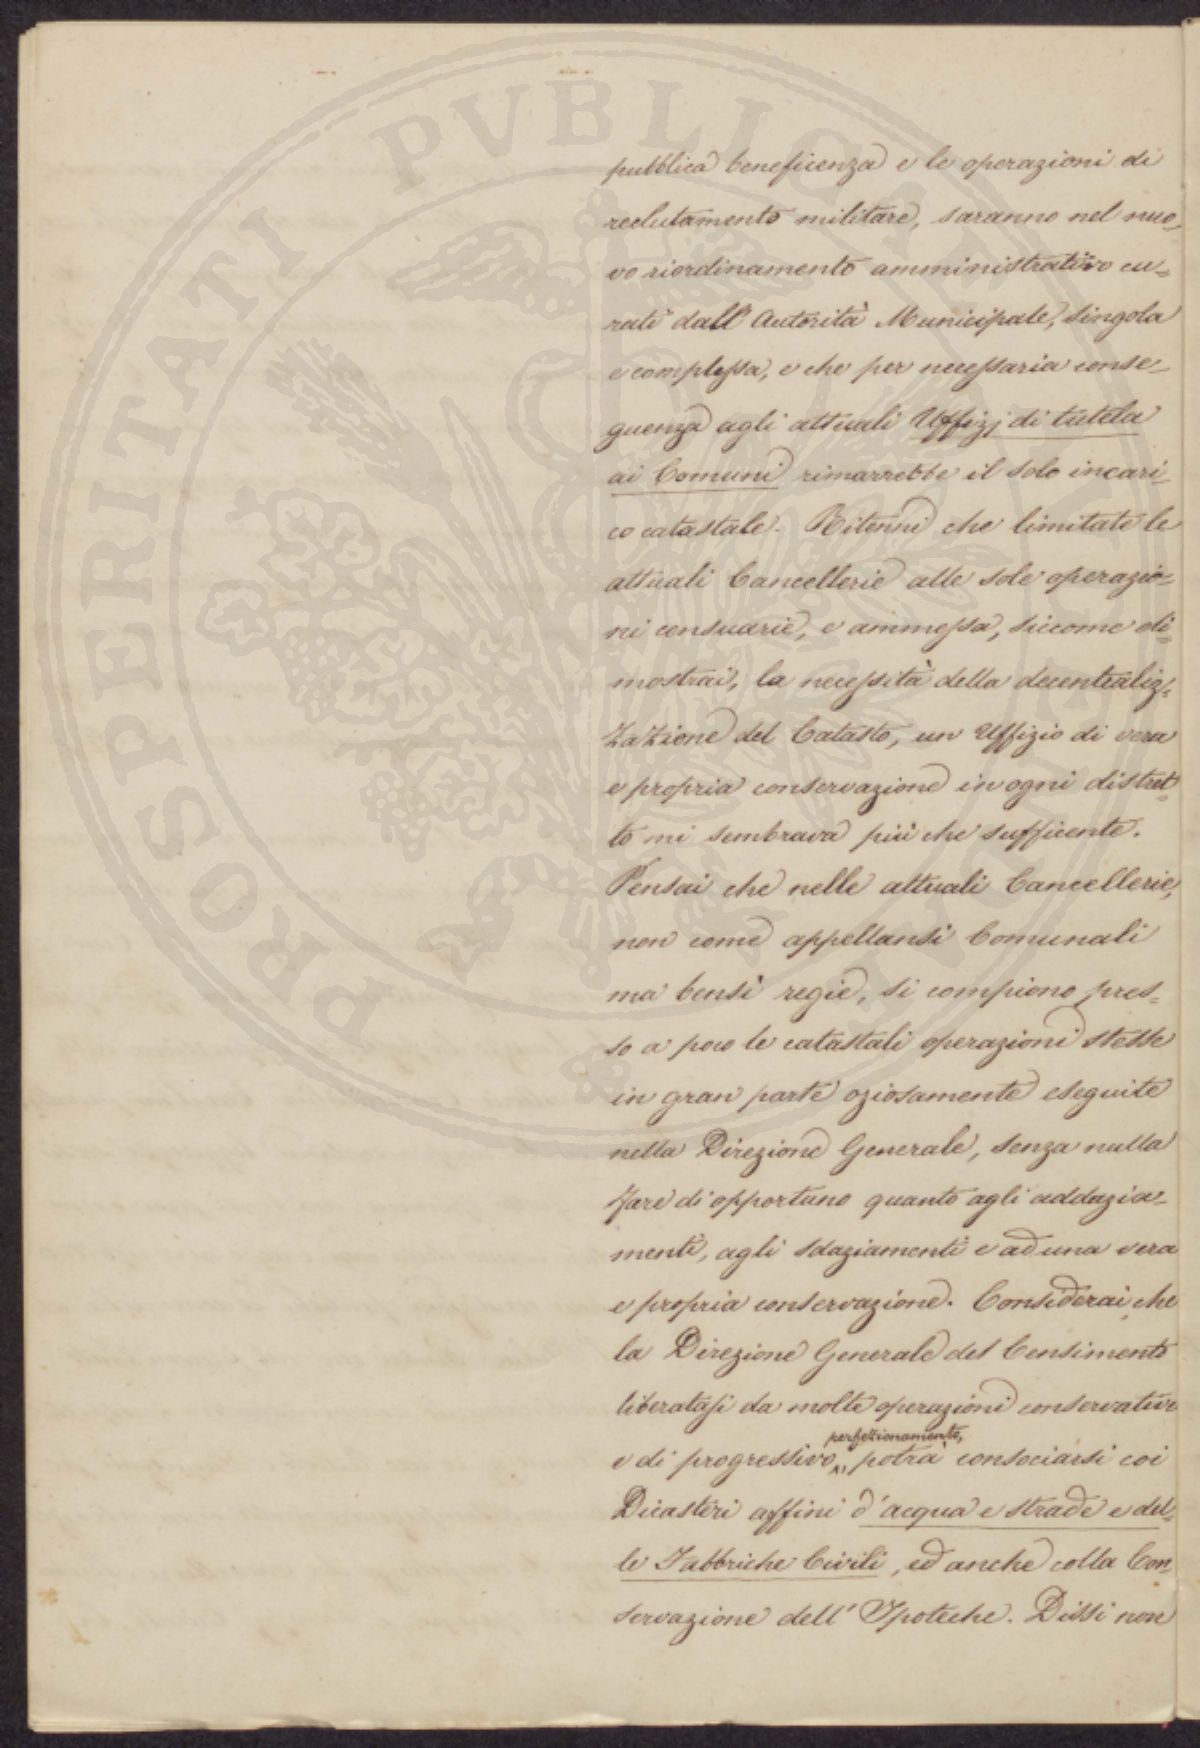 pubblica beneficenza e le operazioni di
reclutamento militare, saranno nel nuo-
vo riordinamento amministrativo cu-
rati dall'Autorità Municipale, singola
e complessa, e che per necessaria conse-
guenza agli attuali Uffizj di tutela
ai Comuni rimarrebbe il solo incari-
co catastale. Ritenni che limitate le
attuali Cancellerie alle sole operazio-
ni censuarie, e ammessa, siccome di-
mostrai, la necessità della decentraliz-
zazione del Catasto, un Uffizio di vera
e propria conservazione in ogni distret-
to mi sembrava più che sufficente.
Pensai che nelle attuali Cancellerie,
non come appellansi Comunali
ma bensì regie, si compiono pres-
so a poco le catastali operazioni stesse
in gran parte oziosamente eseguite
nella Direzione Generale, senza nulla
fare di opportuno quanto agli addazia-
menti, agli sdaziamenti e ad una vera
e propria conservazione. Considerai che
la Direzione Generale del Censimento
liberatasi da molte operazioni conservative
perfezionamento,
e di progressivo potrà consociarsi coi
Dicasteri affini d'acqua e strade e del-
le Fabbriche Civili, ed anche colla Con-
servazione dell'Ipoteche. Dissi non
PROSPERITATI PVBLICAE